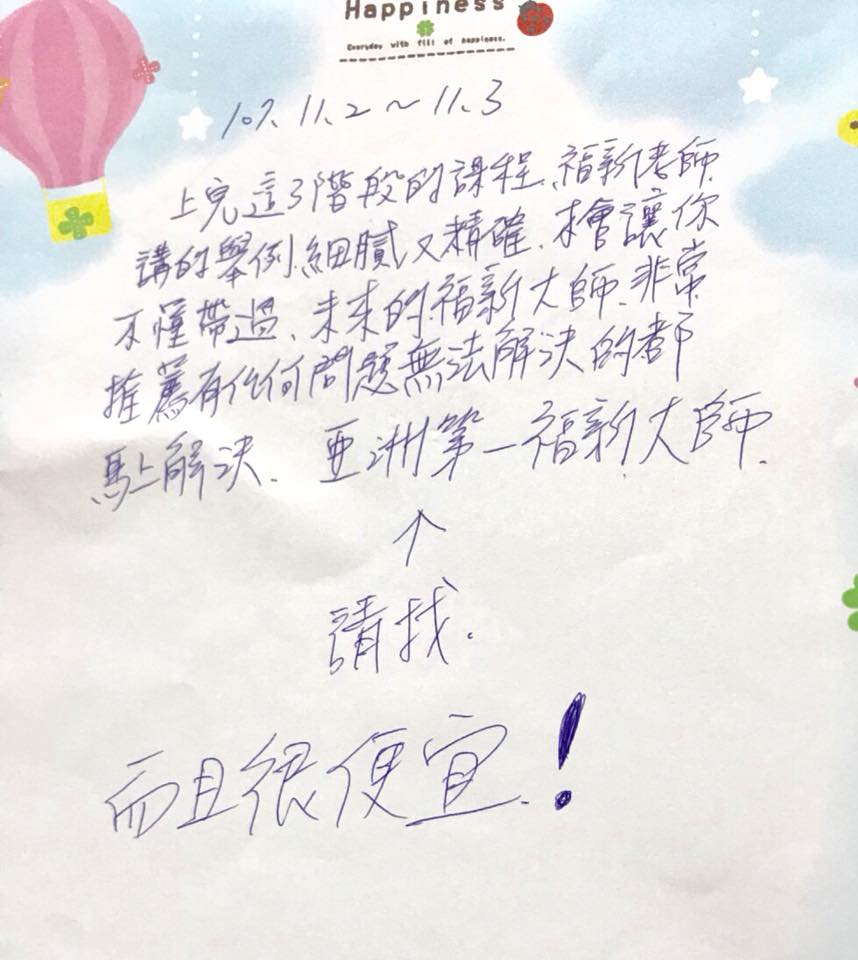 Happiness
Everyday with fill of happiness.
107.11.2～11.3
上完這3階段的課程、福新老師
講的舉例、細膩又精確、不會讓你
不懂帶過、未來的福新大師、非常
推薦有任何問題無法解決的都
馬上解決、亞洲第一福新大師、
↑
請找.
而且很便宜.!